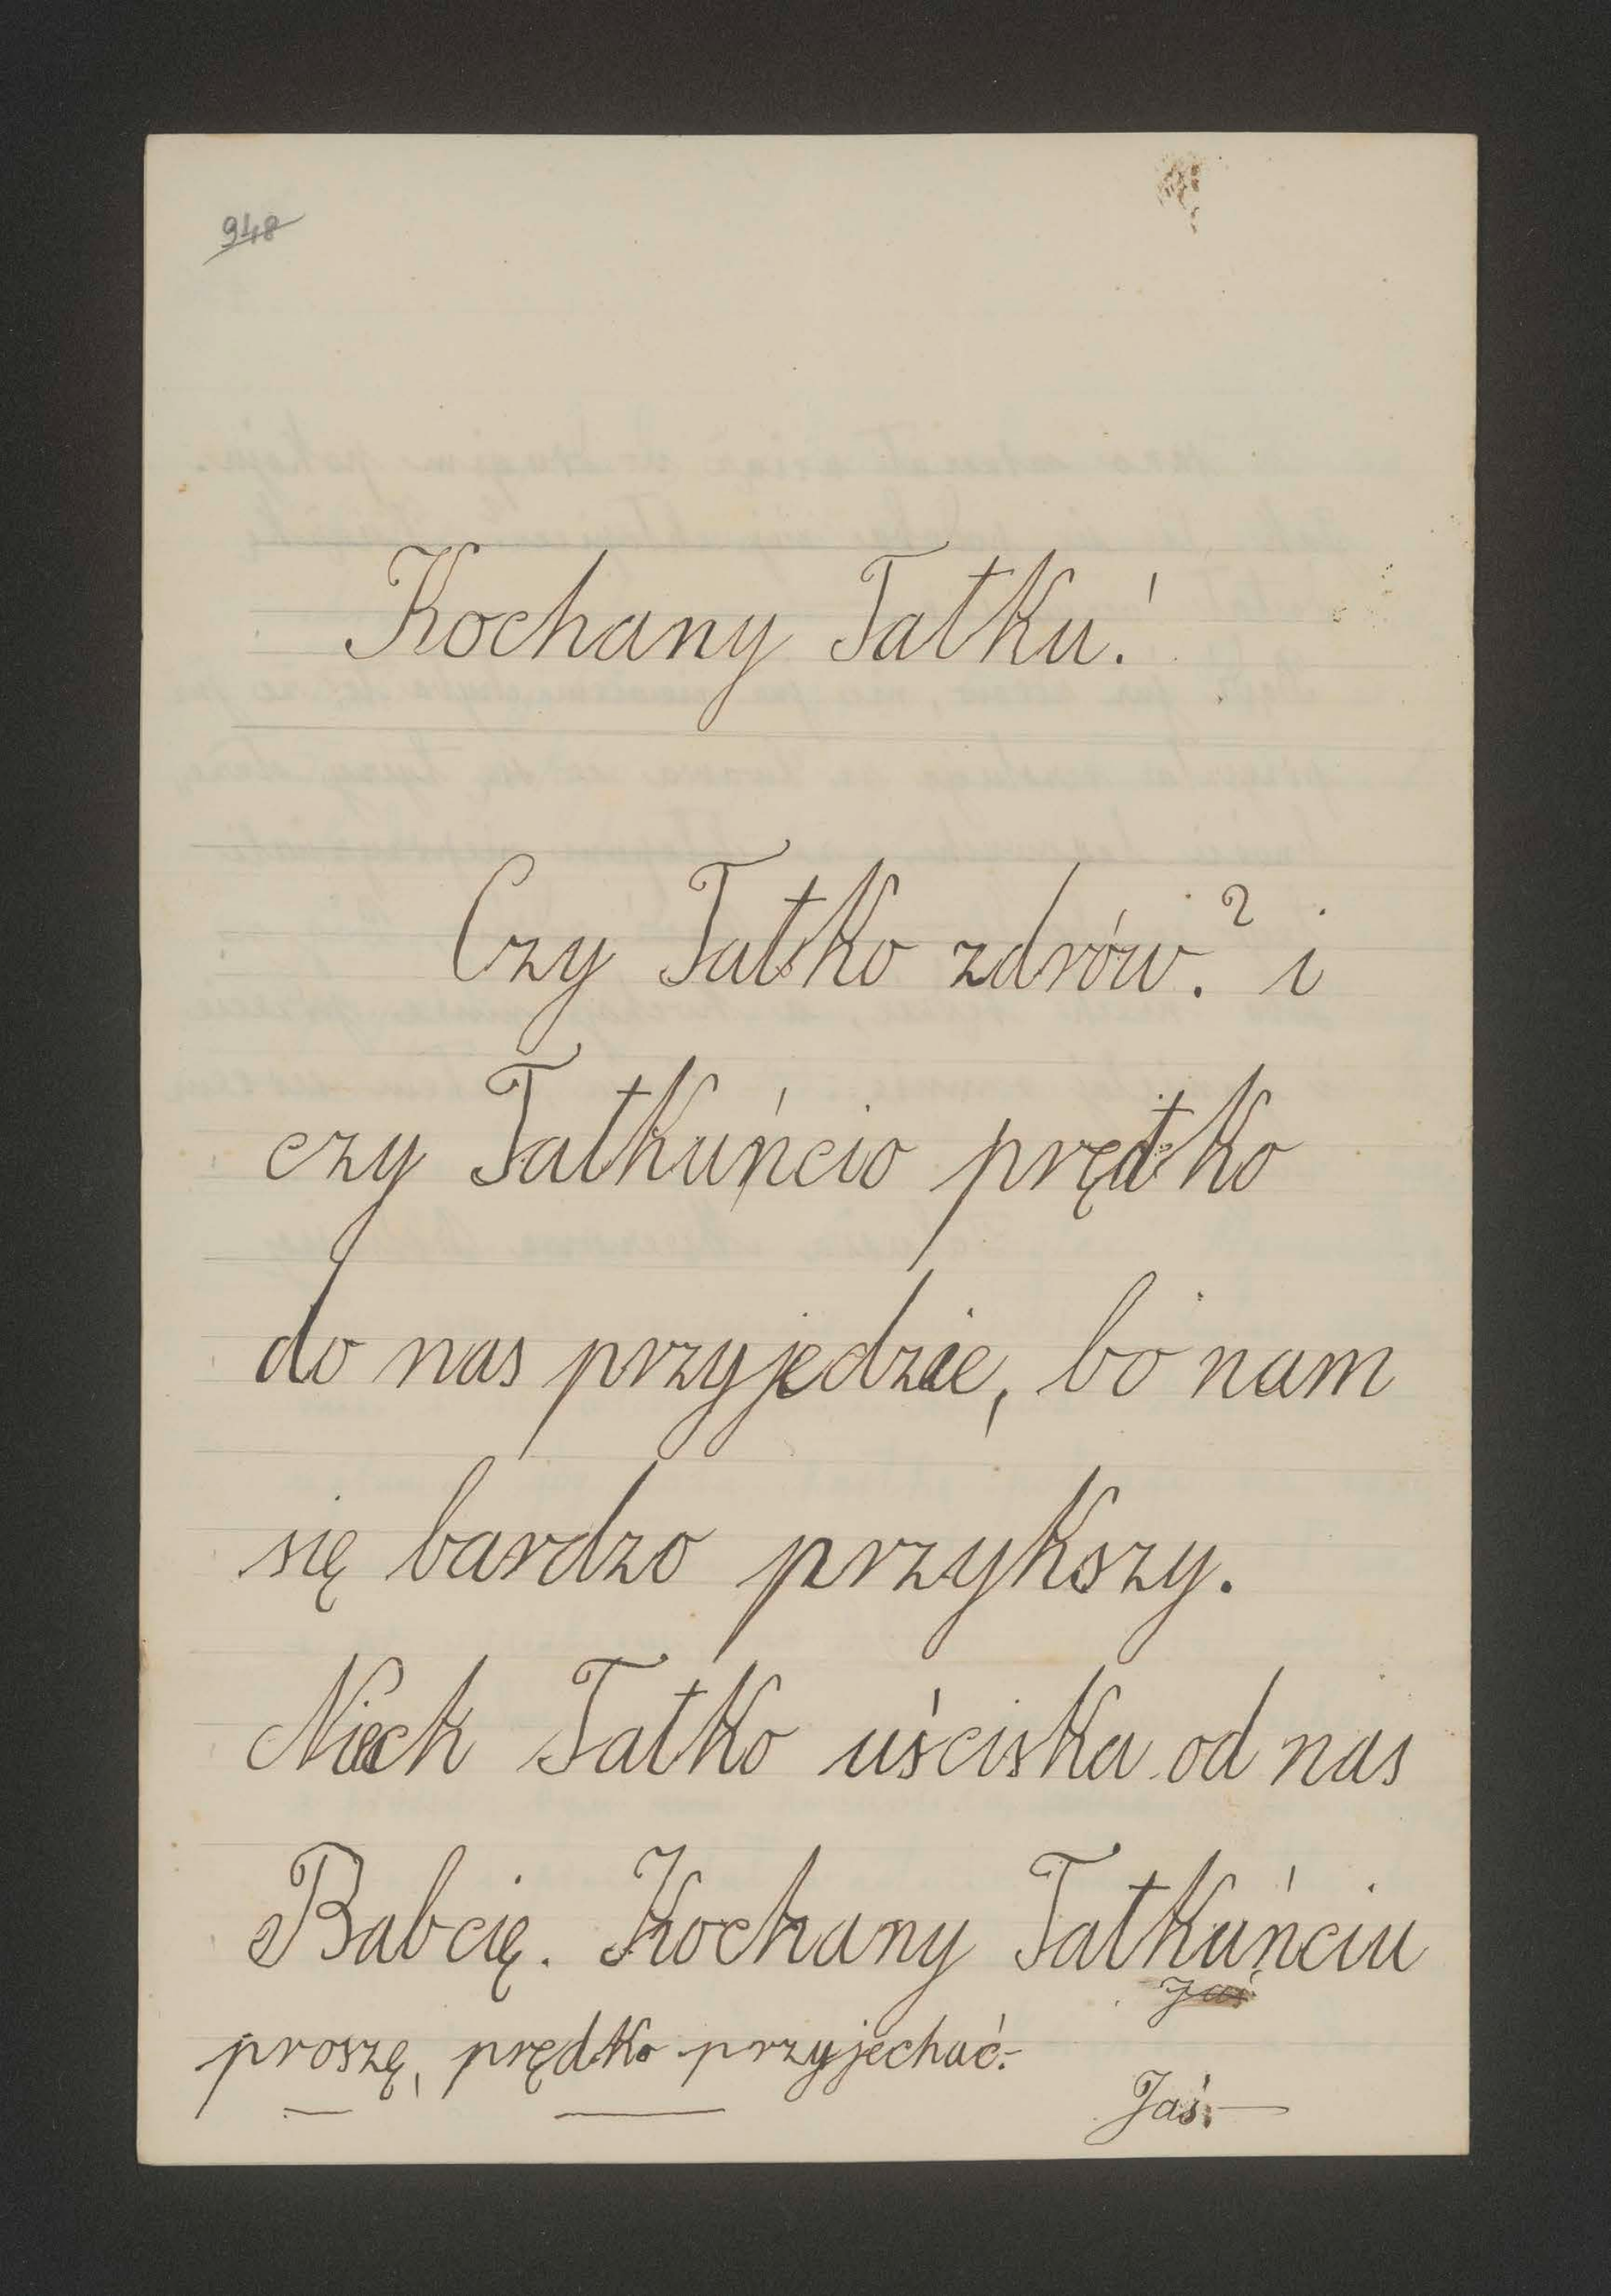 948
Kochany Tatku!
Czy Tatko zdrów? i
czy Tatkuńcio prędko
do nas przyjedzie, bo nam
się bardzo przykszy.
Niech Tatko uściska od nas
Babcię. Kochany Tatkuńciu
Jaś
proszę, prędko przyjechać.
Jaś.